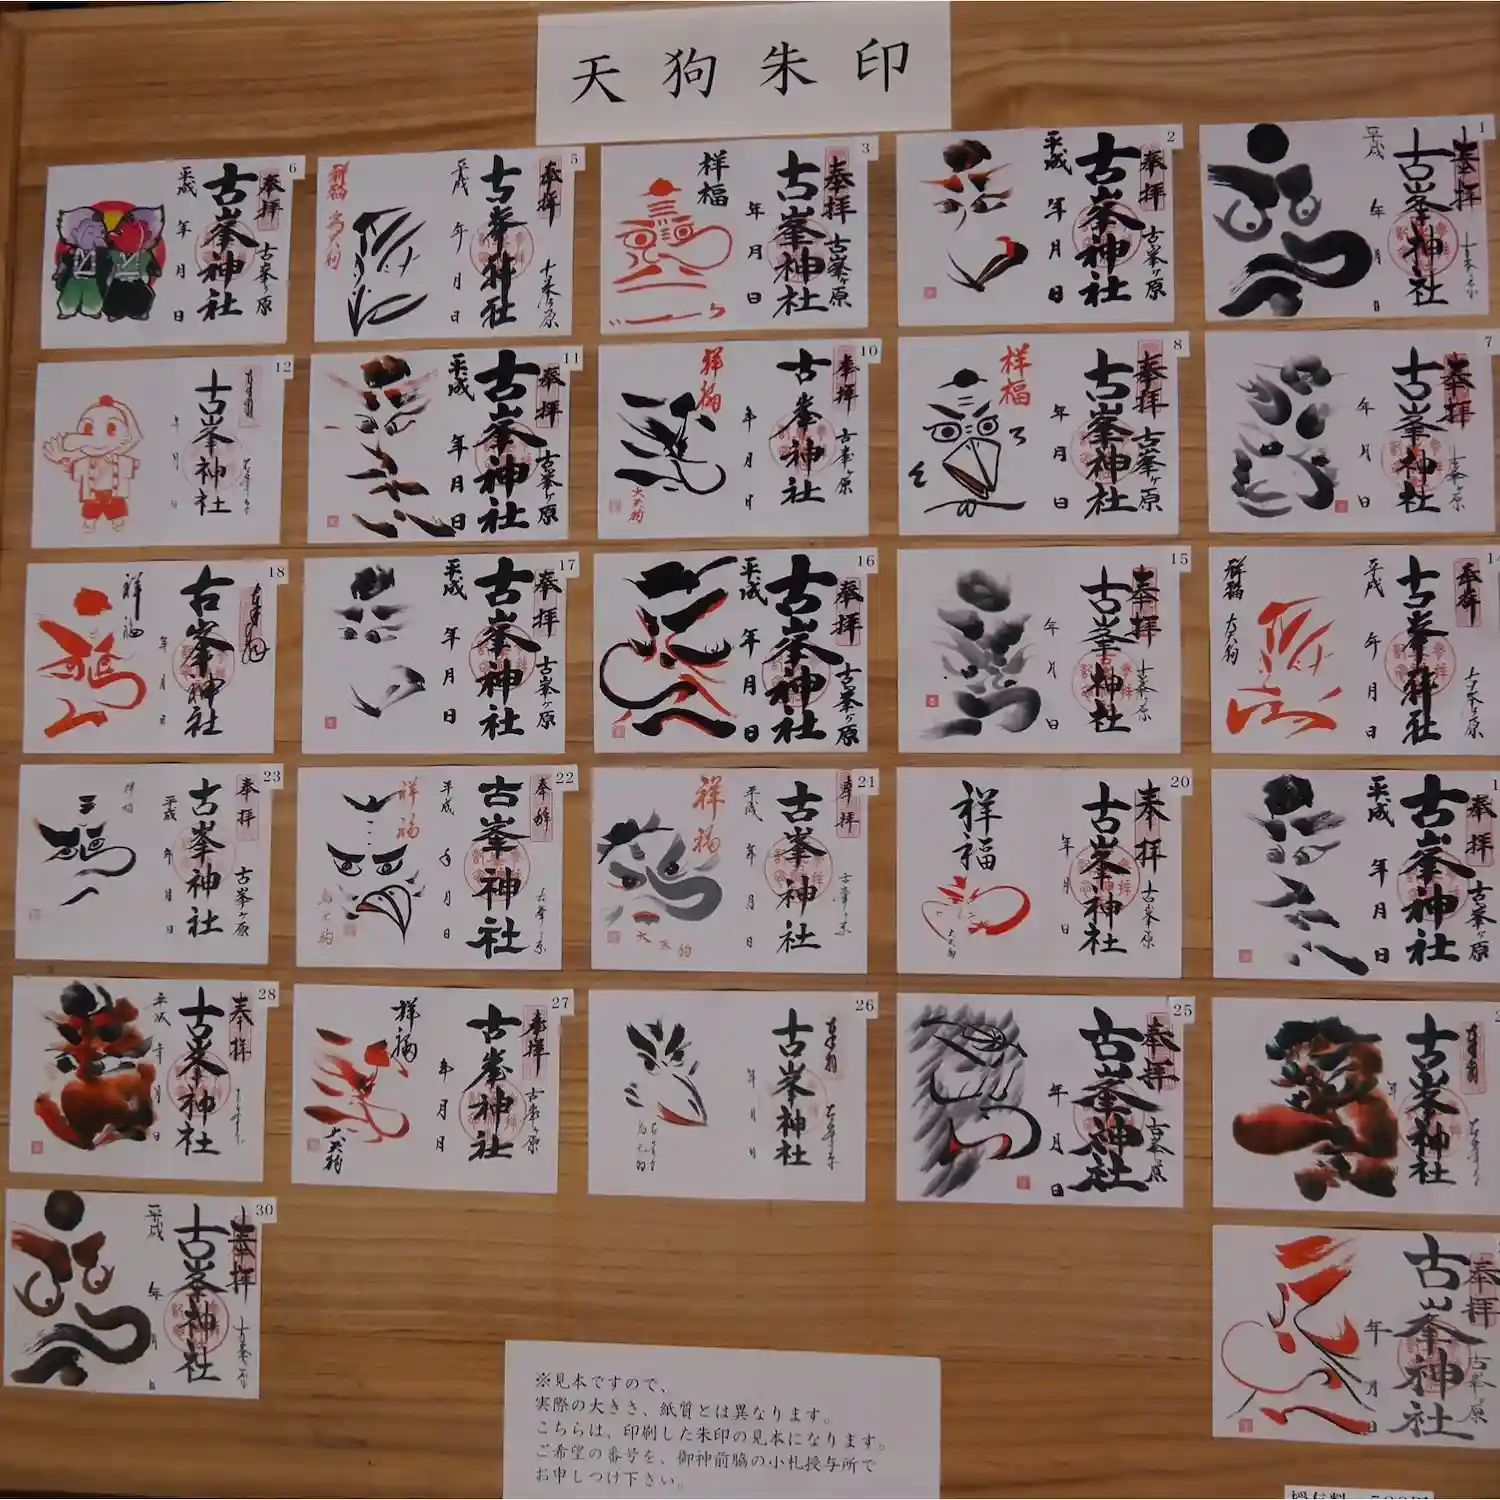 天狗朱印
6
奉拝
古峯神社
古峯ヶ原
平成 年 月 日
5
奉拝
古峯神社
古峯ヶ原
平成 年 月 日
祥福
3
奉拝
古峯神社
古峯ヶ原
年 月 日
祥福
2
奉拝
古峯神社
古峯ヶ原
平成 年 月 日
1
奉拝
古峯神社
古峯ヶ原
平成 年 月 日
12
古峯神社
年 月 日
11
奉拝
古峯神社
古峯ヶ原
平成 年 月 日
10
奉拝
古峯神社
古峯ヶ原
年 月 日
祥福
大天狗
8
奉拝
古峯神社
古峯ヶ原
年 月 日
祥福
7
奉拝
古峯神社
古峯ヶ原
年 月 日
18
古峯神社
年 月 日
祥福
17
奉拝
古峯神社
古峯ヶ原
平成 年 月 日
16
奉拝
古峯神社
古峯ヶ原
平成 年 月 日
15
奉拝
古峯神社
古峯ヶ原
年 月 日
奉拝
古峯神社
古峯ヶ原
平成 年 月 日
祥福
大天狗
23
奉拝
古峯神社
古峯ヶ原
平成 年 月 日
祥福
22
奉拝
古峯神社
古峯ヶ原
平成 年 月 日
祥福
烏天狗
21
奉拝
古峯神社
古峯ヶ原
平成 年 月 日
祥福
大天狗
20
奉拝
古峯神社
古峯ヶ原
年 月 日
祥福
大天狗
奉拝
古峯神社
古峯ヶ原
平成 年 月 日
28
奉拝
古峯神社
平成 年 月 日
27
奉拝
古峯神社
古峯ヶ原
年 月 日
祥福
大天狗
26
古峯神社
年 月 日
25
奉拝
古峯神社
古峯ヶ原
年 月 日
古峯神社
30
奉拝
古峯神社
古峯ヶ原
平成 年 月 日
奉拝
古峯神社
古峯ヶ原
年 月 日
※見本ですので、
実際の大きさ、紙質とは異なります。
こちらは、印刷した朱印の見本になります。
ご希望の番号を、御神前脇の小札授与所で
お申しつけ下さい。